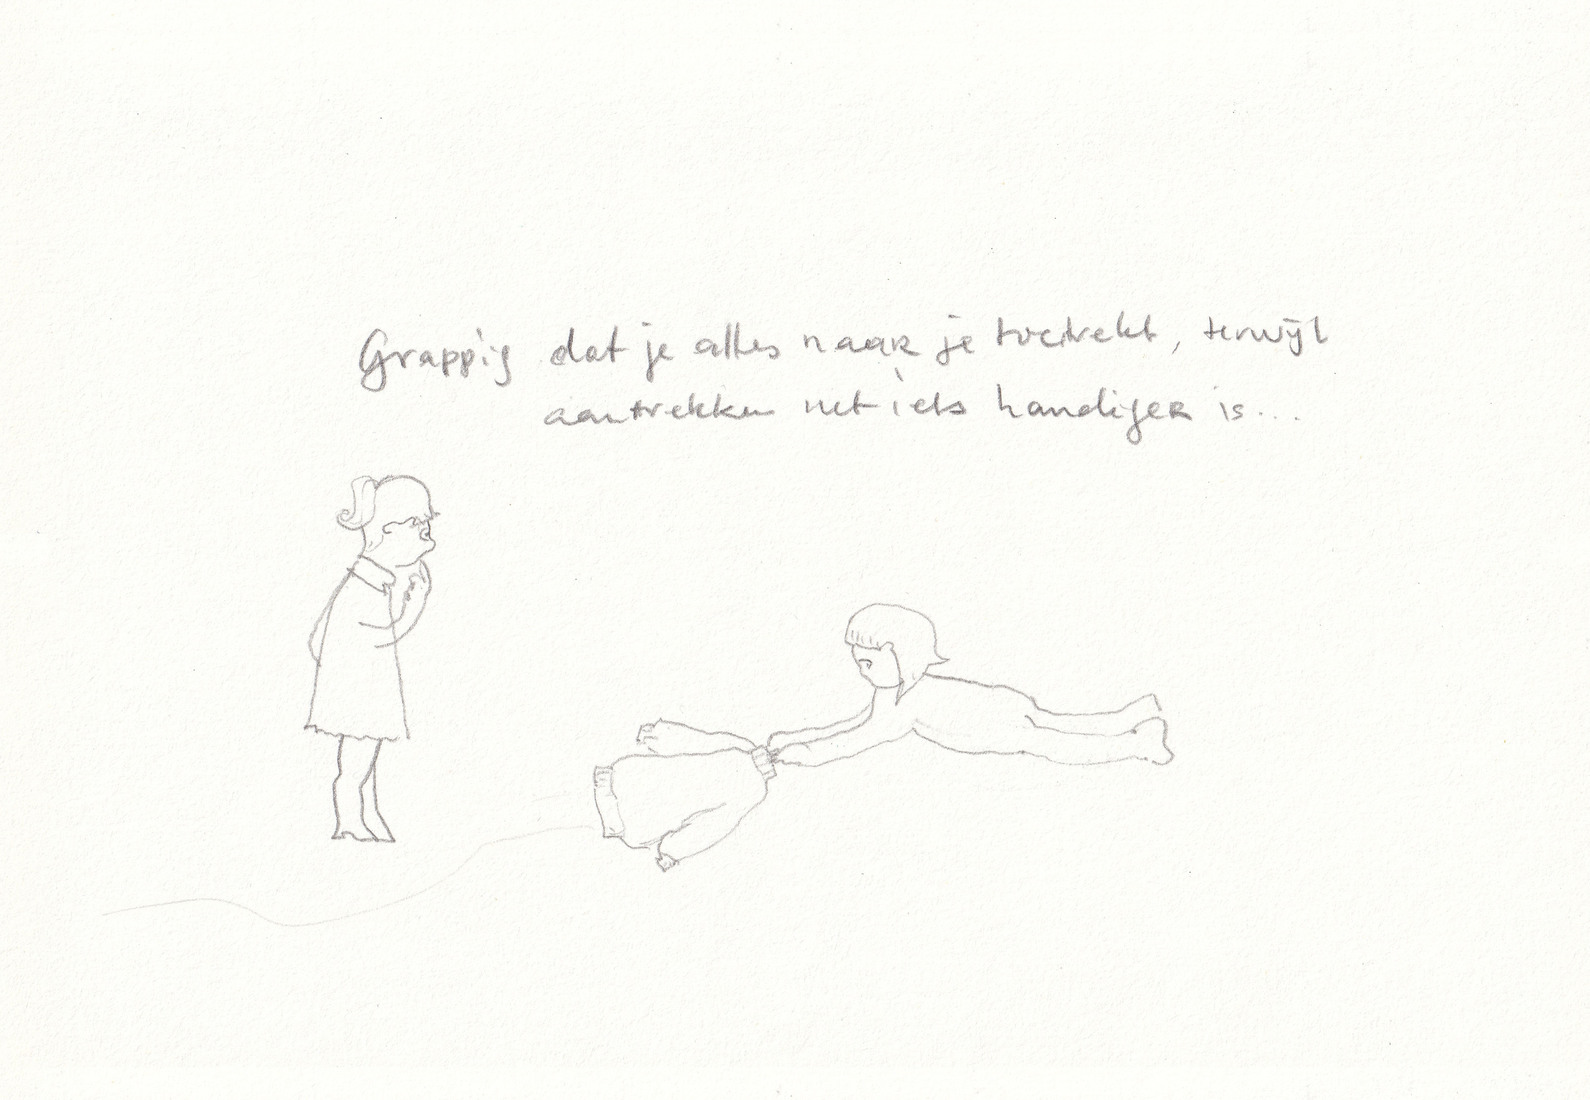 Grappig dat je alles naar je toetrekt, terwijl
aantrekken net iets handiger is...